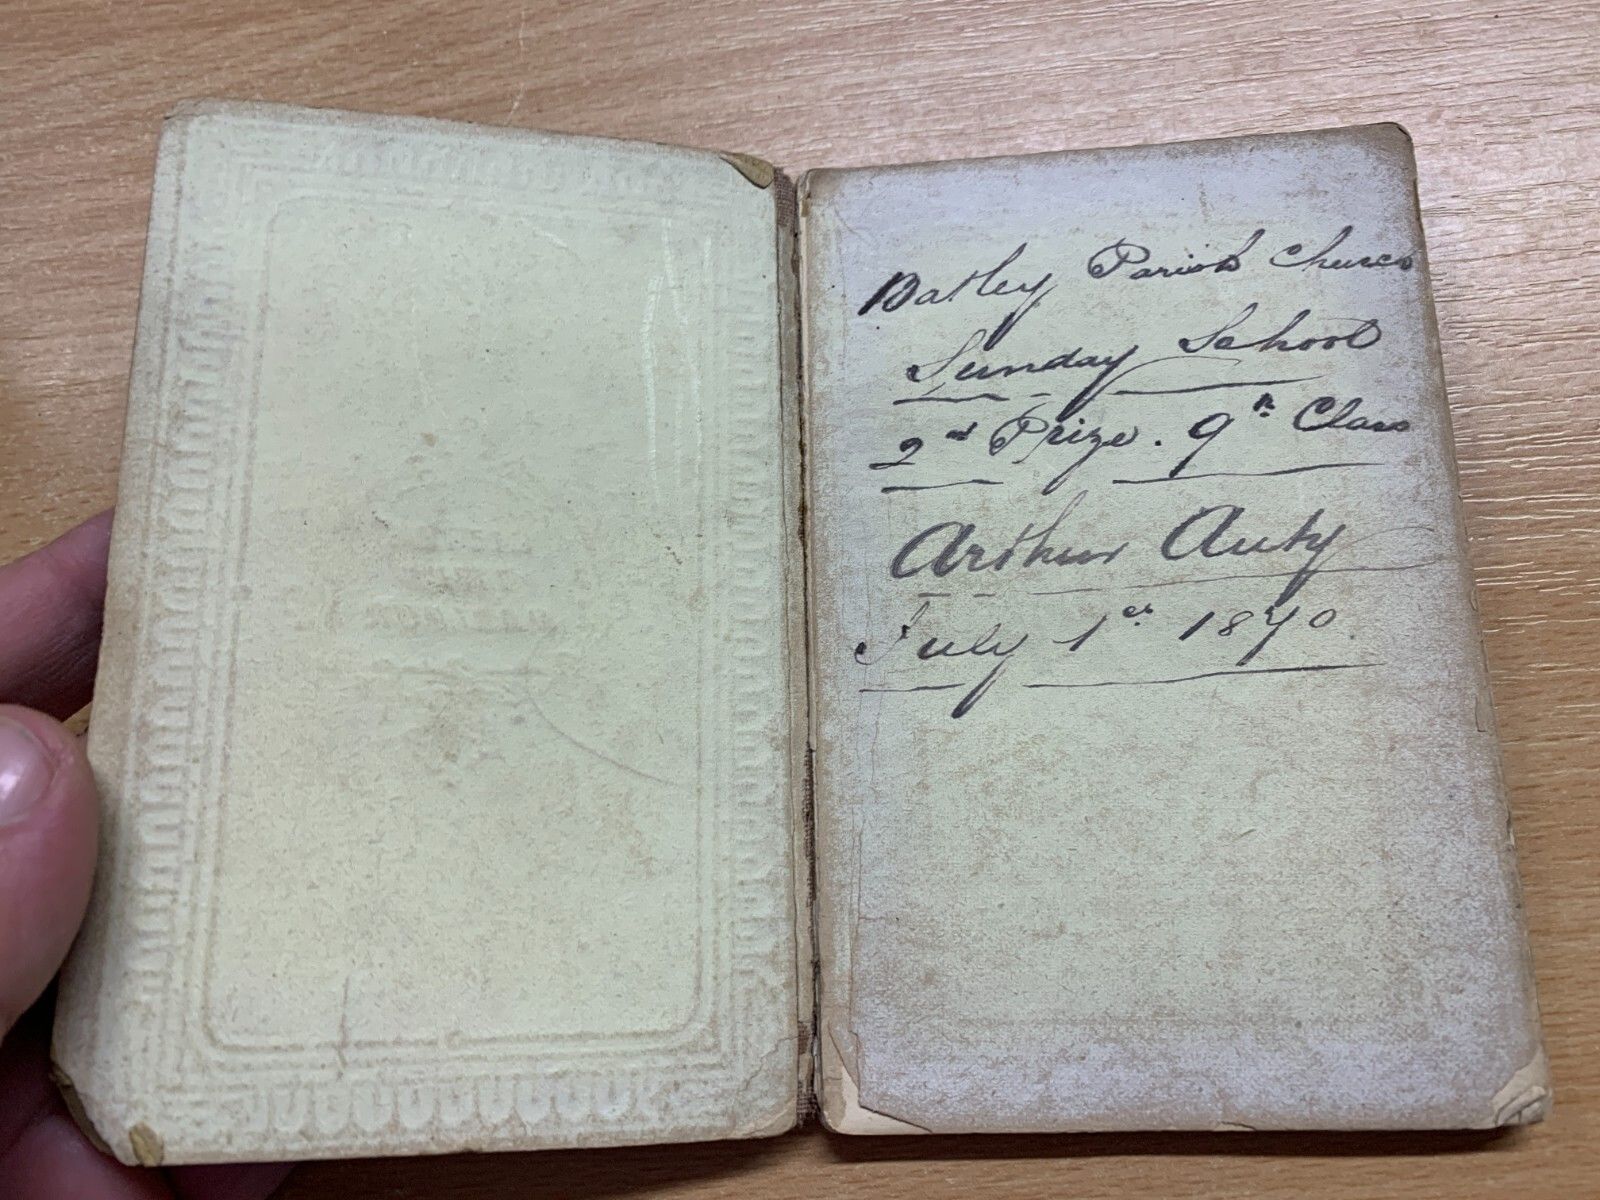 Batley Parish Church
Sunday School
2nd Prize. 9th Class
Arthur Auty
July 1st 1870.